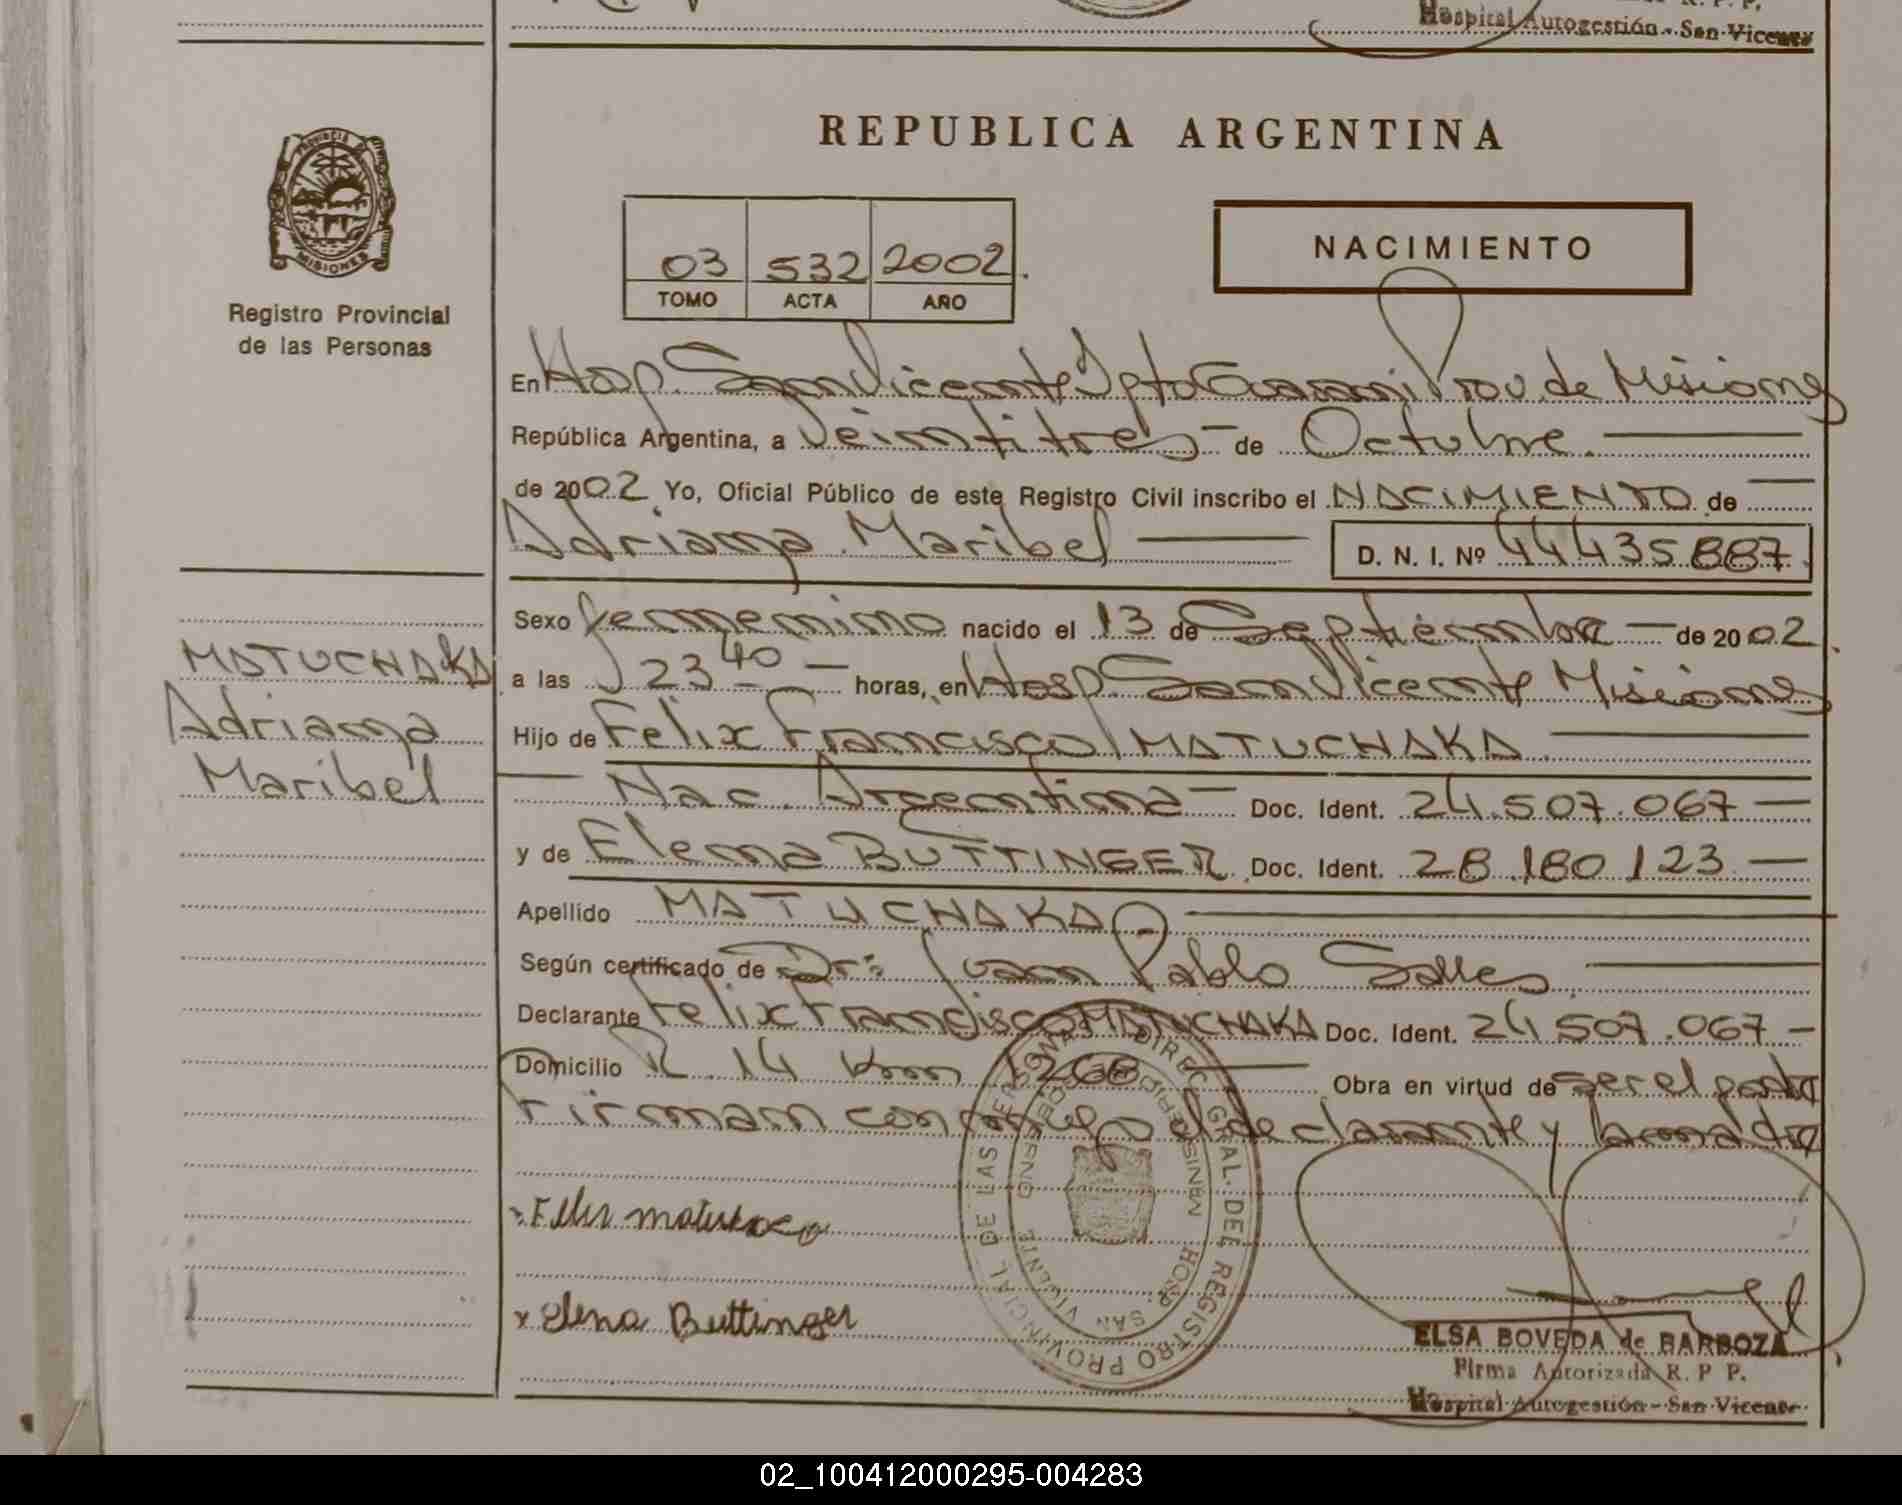 R. P. P.
Hospital Autogestión - San Vicente
PROVINCIA DE
MISIONES
Registro Provincial
de las Personas
REPUBLICA ARGENTINA
03 532 2002.
TOMO ACTA AÑO
NACIMIENTO
En Hosp. San Vicente Dpto Guaraní Prov. de Misiones
República Argentina, a Veintitres - de Octubre.
de 2002 Yo, Oficial Público de este Registro Civil inscribo el NACIMIENTO de
Adriana Maribel D. N. I. Nº 44435887
Sexo femenino nacido el 13 de Septiembre - de 2002.
a las 23 40 - horas, en Hosp. San Vicente Misiones
Hijo de Felix Francisco MATUCHAKA
Nac. Argentina - Doc. Ident. 24.507.067 -
y de Elena BUTTINGER Doc. Ident. 28.180.123 -
Apellido MATUCHAKA
Según certificado de Dr: Juan Pablo Salles
Declarante Felix Francisco MATUCHAKA Doc. Ident. 24 507.067 -
Domicilio R. 14 Km 1268 Obra en virtud de ser el padre
Firman conmigo el declarante y la madre
MATUCHAKA
Adriana
Maribel
Felix Matuchaka
x Elena Buttinger
DIREC. GRAL. DEL REGISTRO PROVINCIAL DE LAS PERSONAS
HOSP. SAN VICENTE
ELSA BOVEDA de BARBOZA
Firma Autorizada R. P P.
Hospital Autogestión - San Vicente
02_100412000295-004283